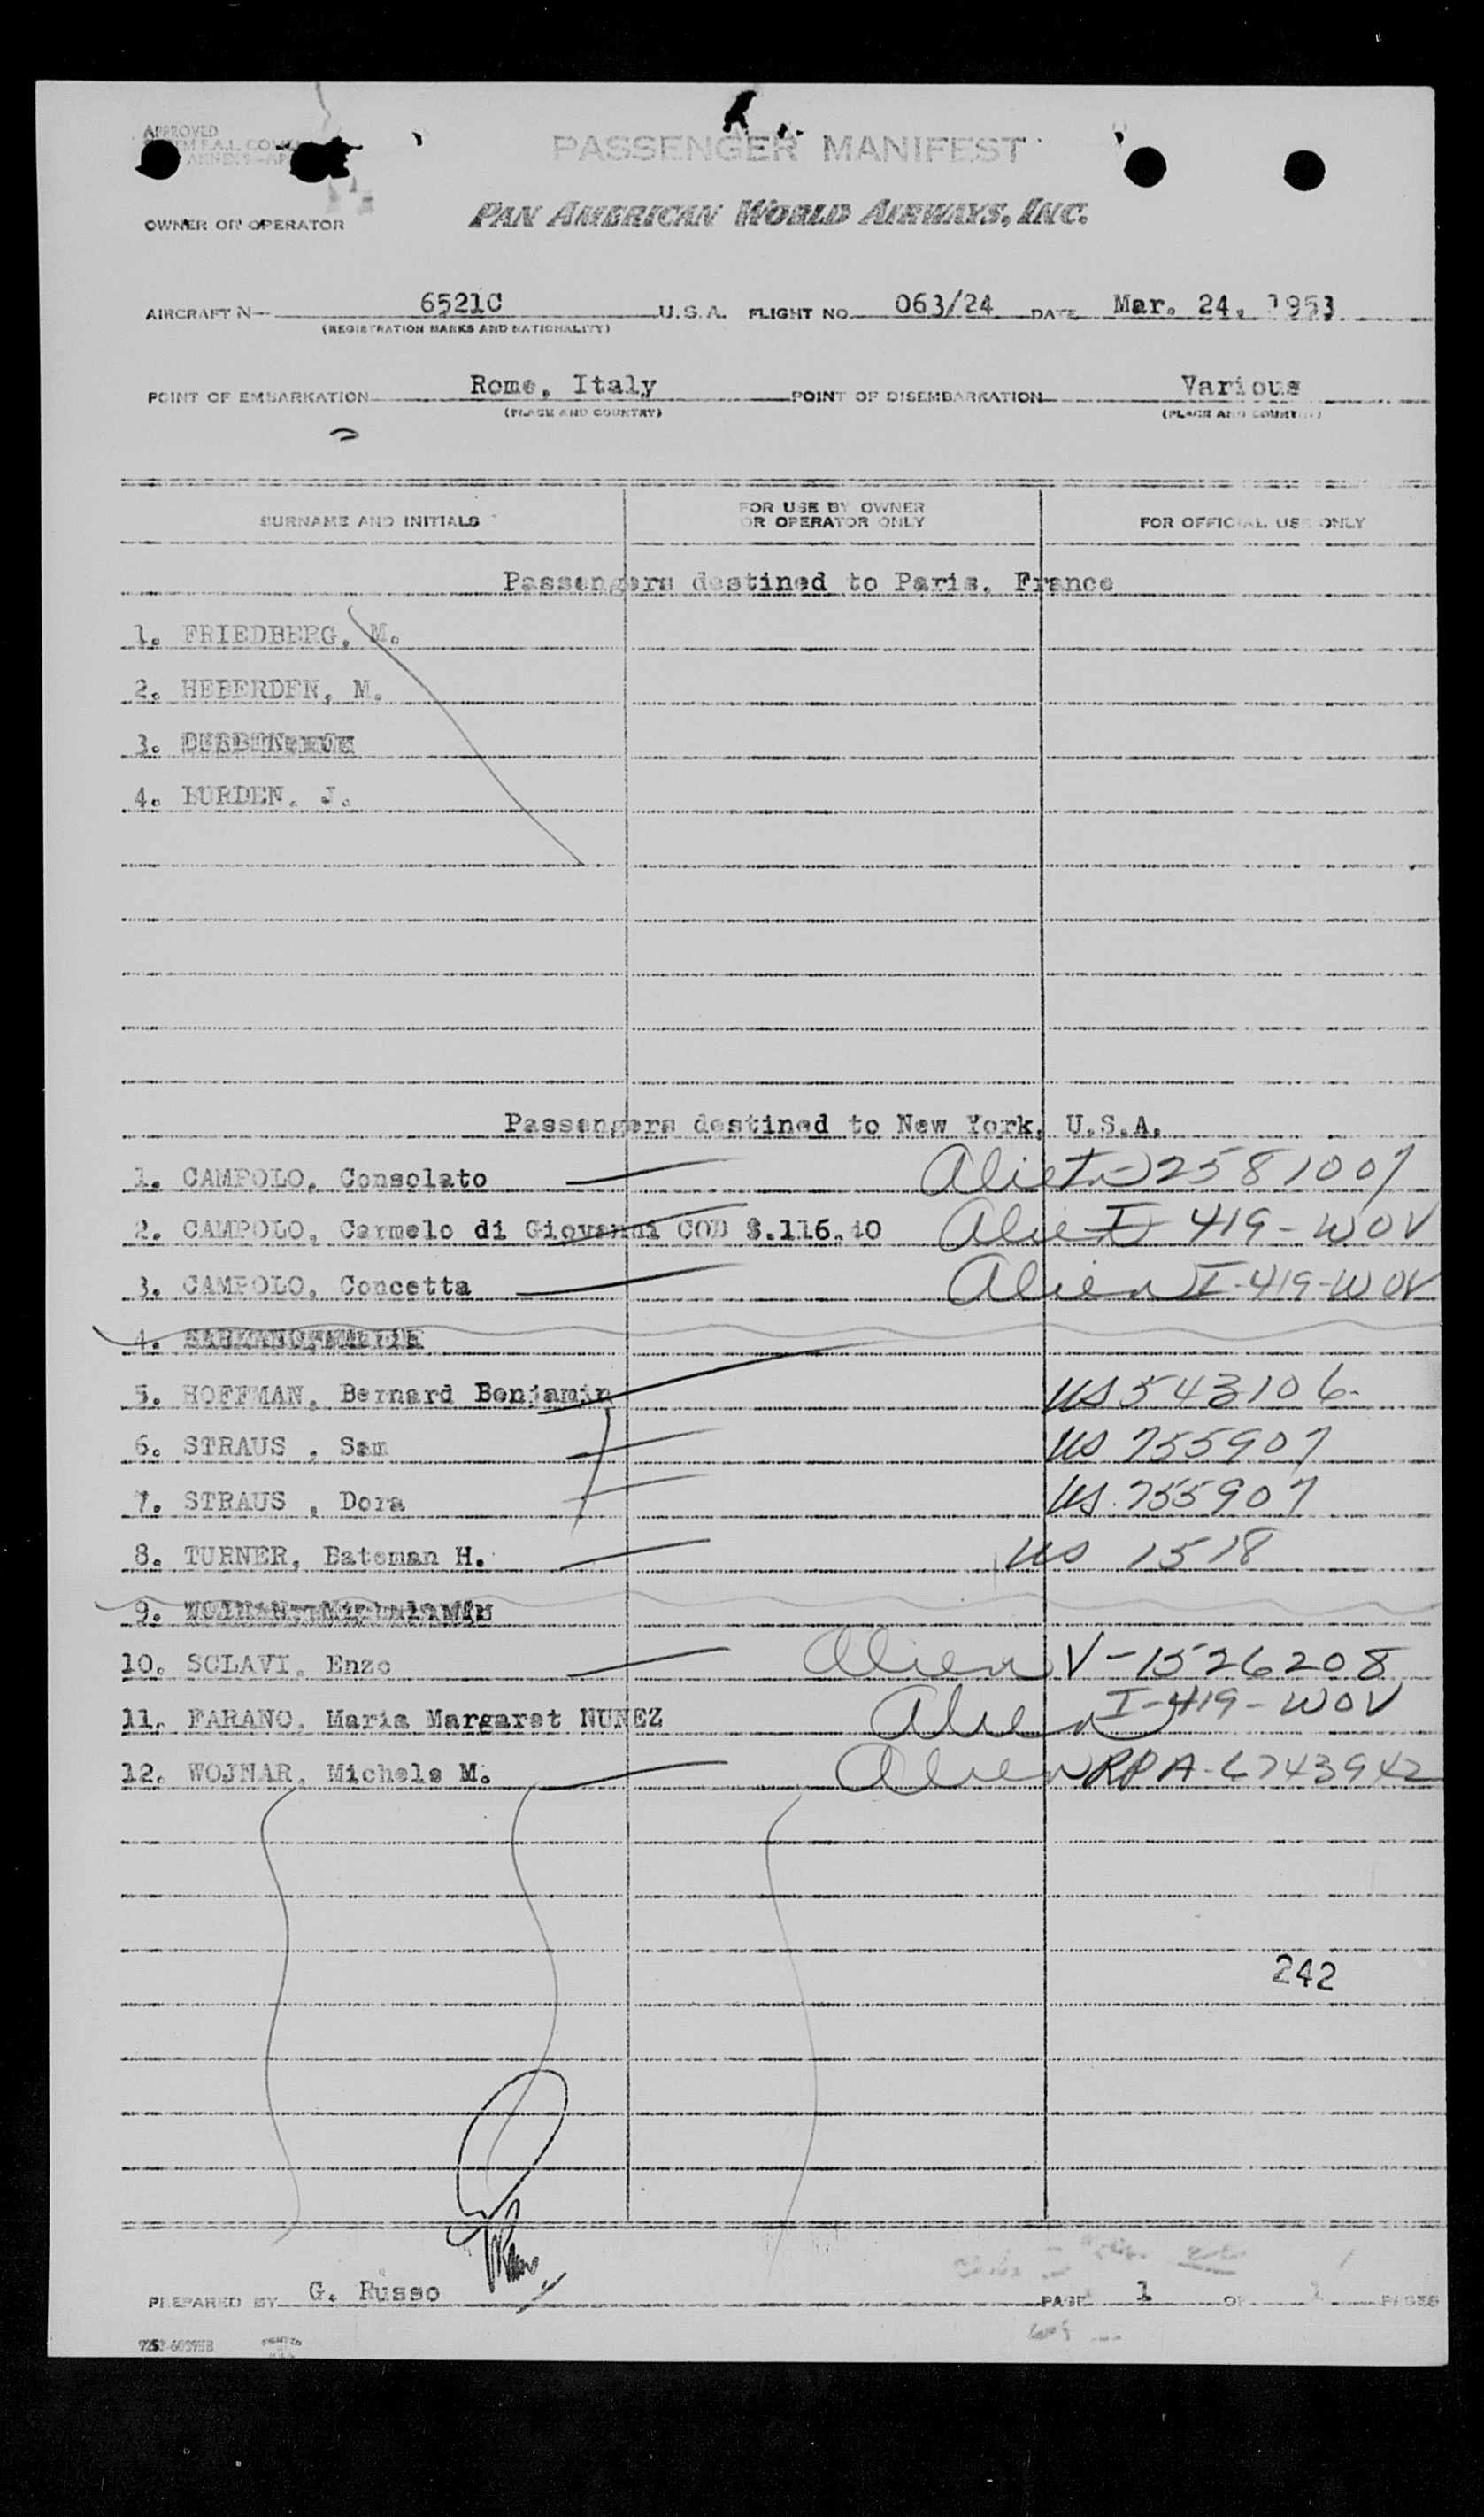 APPROVED
PASSENGER MANIFEST
OWNER OR OPERATOR PAN AMERICAN WORLD AIRWAYS, INC.
AIRCRAFT N- 6521C U.S.A. FLIGHT NO. 063/24 DATE Mar. 24, 1953
(REGISTRATION MARKS AND NATIONALITY)
POINT OF EMBARKATION Rome, Italy POINT OF DISEMBARKATION Various
(PLACE AND COUNTRY) (PLACE AND COUNTRY)
SURNAME AND INITIALS FOR USE BY OWNER OR OPERATOR ONLY FOR OFFICIAL USE ONLY
Passengers destined to Paris, France
1. FRIEDBERG, M.
2. HEBERDEN, M.
3.
4. BURDEN, J.
Passengers destined to New York, U.S.A.
1. CAMPOLO, Consolato Alien 2581007
2. CAMPOLO, Carmelo di Giovanni COD $.116.40 Alien I-419-WOV
3. CAMPOLO, Concetta Alien I-419-WOV
4.
5. HOFFMAN, Bernard Benjamin US 543106
6. STRAUS , Sam US 755907
7. STRAUS , Dora US 755907
8. TURNER, Bateman H. US 1518
9.
10. SCLAVI, Enzo Alien V-1526208
11. FARANO, Maria Margaret NUNEZ Alien I-419-WOV
12. WOJNAR, Michele M. Alien RP A-6743942
242
PREPARED BY G. Russo PAGE 1 OF 1 PAGES